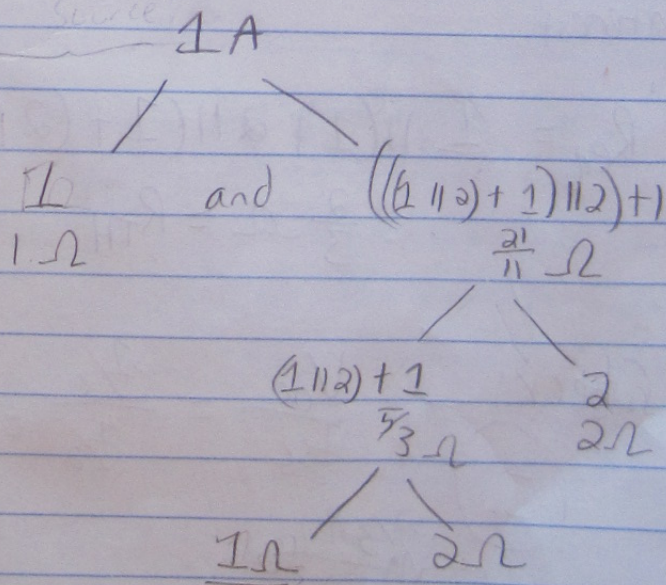 Source
1 A
1 and (((1 || 2) + 1) || 2) + 1
1 Ω 21/11 Ω
(1 || 2) + 1 2
5/3 Ω 2Ω
1Ω 2Ω